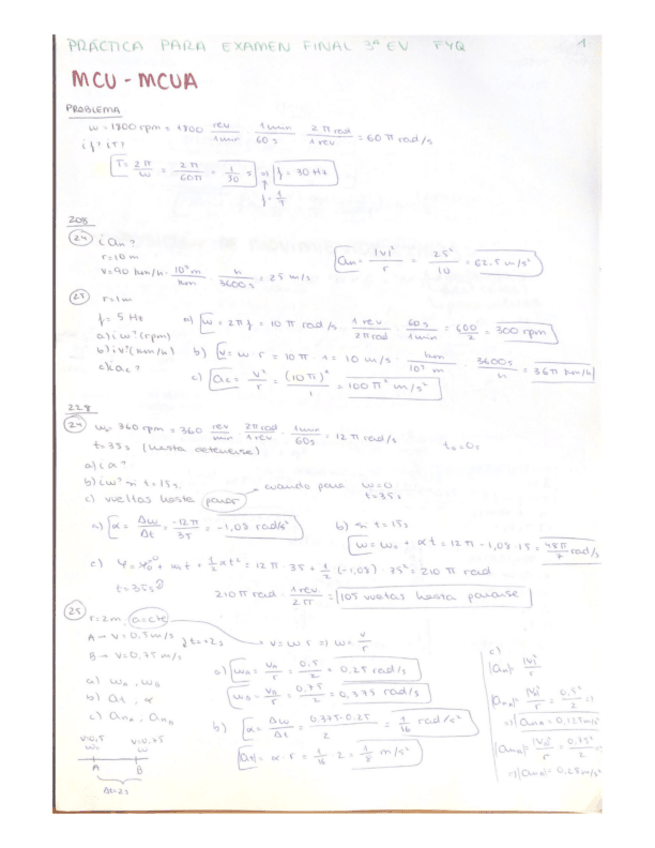 PRÁCTICA PARA EXAMEN FINAL 3ª EV FYQ 1
MCU - MCUA
PROBLEMA
w = 1800 rpm = 1800 rev/1min · 1min/60s · 2π rad/1 rev = 60π rad/s
¿f? ¿T?
T = 2π/w = 2π/60π = 1/30 s ⇒ f = 30 Hz
f = 1/T
208
24 ¿an?
r = 10 m
v = 90 km/h · 10³m/km · h/3600s = 25 m/s
an = |v|²/r = 25²/10 = 62.5 m/s²
r = 1m
f = 5 Hz
a) ¿w? (rpm)
b) ¿v? (km/h)
c) ¿ac?
a) w = 2πf = 10π rad/s · 1 rev/2π rad · 60s/1min = 600/2 = 300 rpm
b) v = w·r = 10π · 1 = 10 m/s · km/10³ m · 3600s/h = 36π km/h
c) ac = v²/r = (10π)²/1 = 100π² m/s²
228
24 w0 = 360 rpm = 360 rev/min · 2π rad/1 rev · 1min/60s = 12π rad/s
t = 35s (hasta detenerse) t0 = 0s
a) ¿α?
b) ¿w? si t = 15s
c) vueltas hasta parar → cuando para w = 0
t = 35s
a) α = Δw/Δt = -12π/35 = -1,08 rad/s²
b) si t = 15s
w = w0 + αt = 12π - 1,08·15 = 48π/7 rad/s
c) φ = φ0 + w0t + 1/2 αt² = 12π · 35 + 1/2 (-1,08) · 35² = 210π rad
t = 35s
210π rad · 1 rev/2π = 105 vueltas hasta pararse
25 r = 2m, a = cte
A → v = 0,5m/s
B → v = 0,75 m/s
t = 2s
v = w r ⇒ w = v/r
a) wA, wB
b) at, α
c) anA, anB
a) wA = vA/r = 0,5/2 = 0,25 rad/s
wB = vB/r = 0,75/2 = 0,375 rad/s
b) α = Δw/Δt = 0,375-0,25/2 = 1/16 rad/s²
|at| = α · r = 1/16 · 2 = 1/8 m/s²
c)
|an| = |v|²/r
|anA| = |v|²/r = 0,5²/2 =
⇒ |anA = 0,125m/s²
|anB| = |vB|²/r = 0,75²/2 =
⇒ |anB| = 0,28m/s²
v=0,5 v=0,75
w0 w
A B
Δt=2s